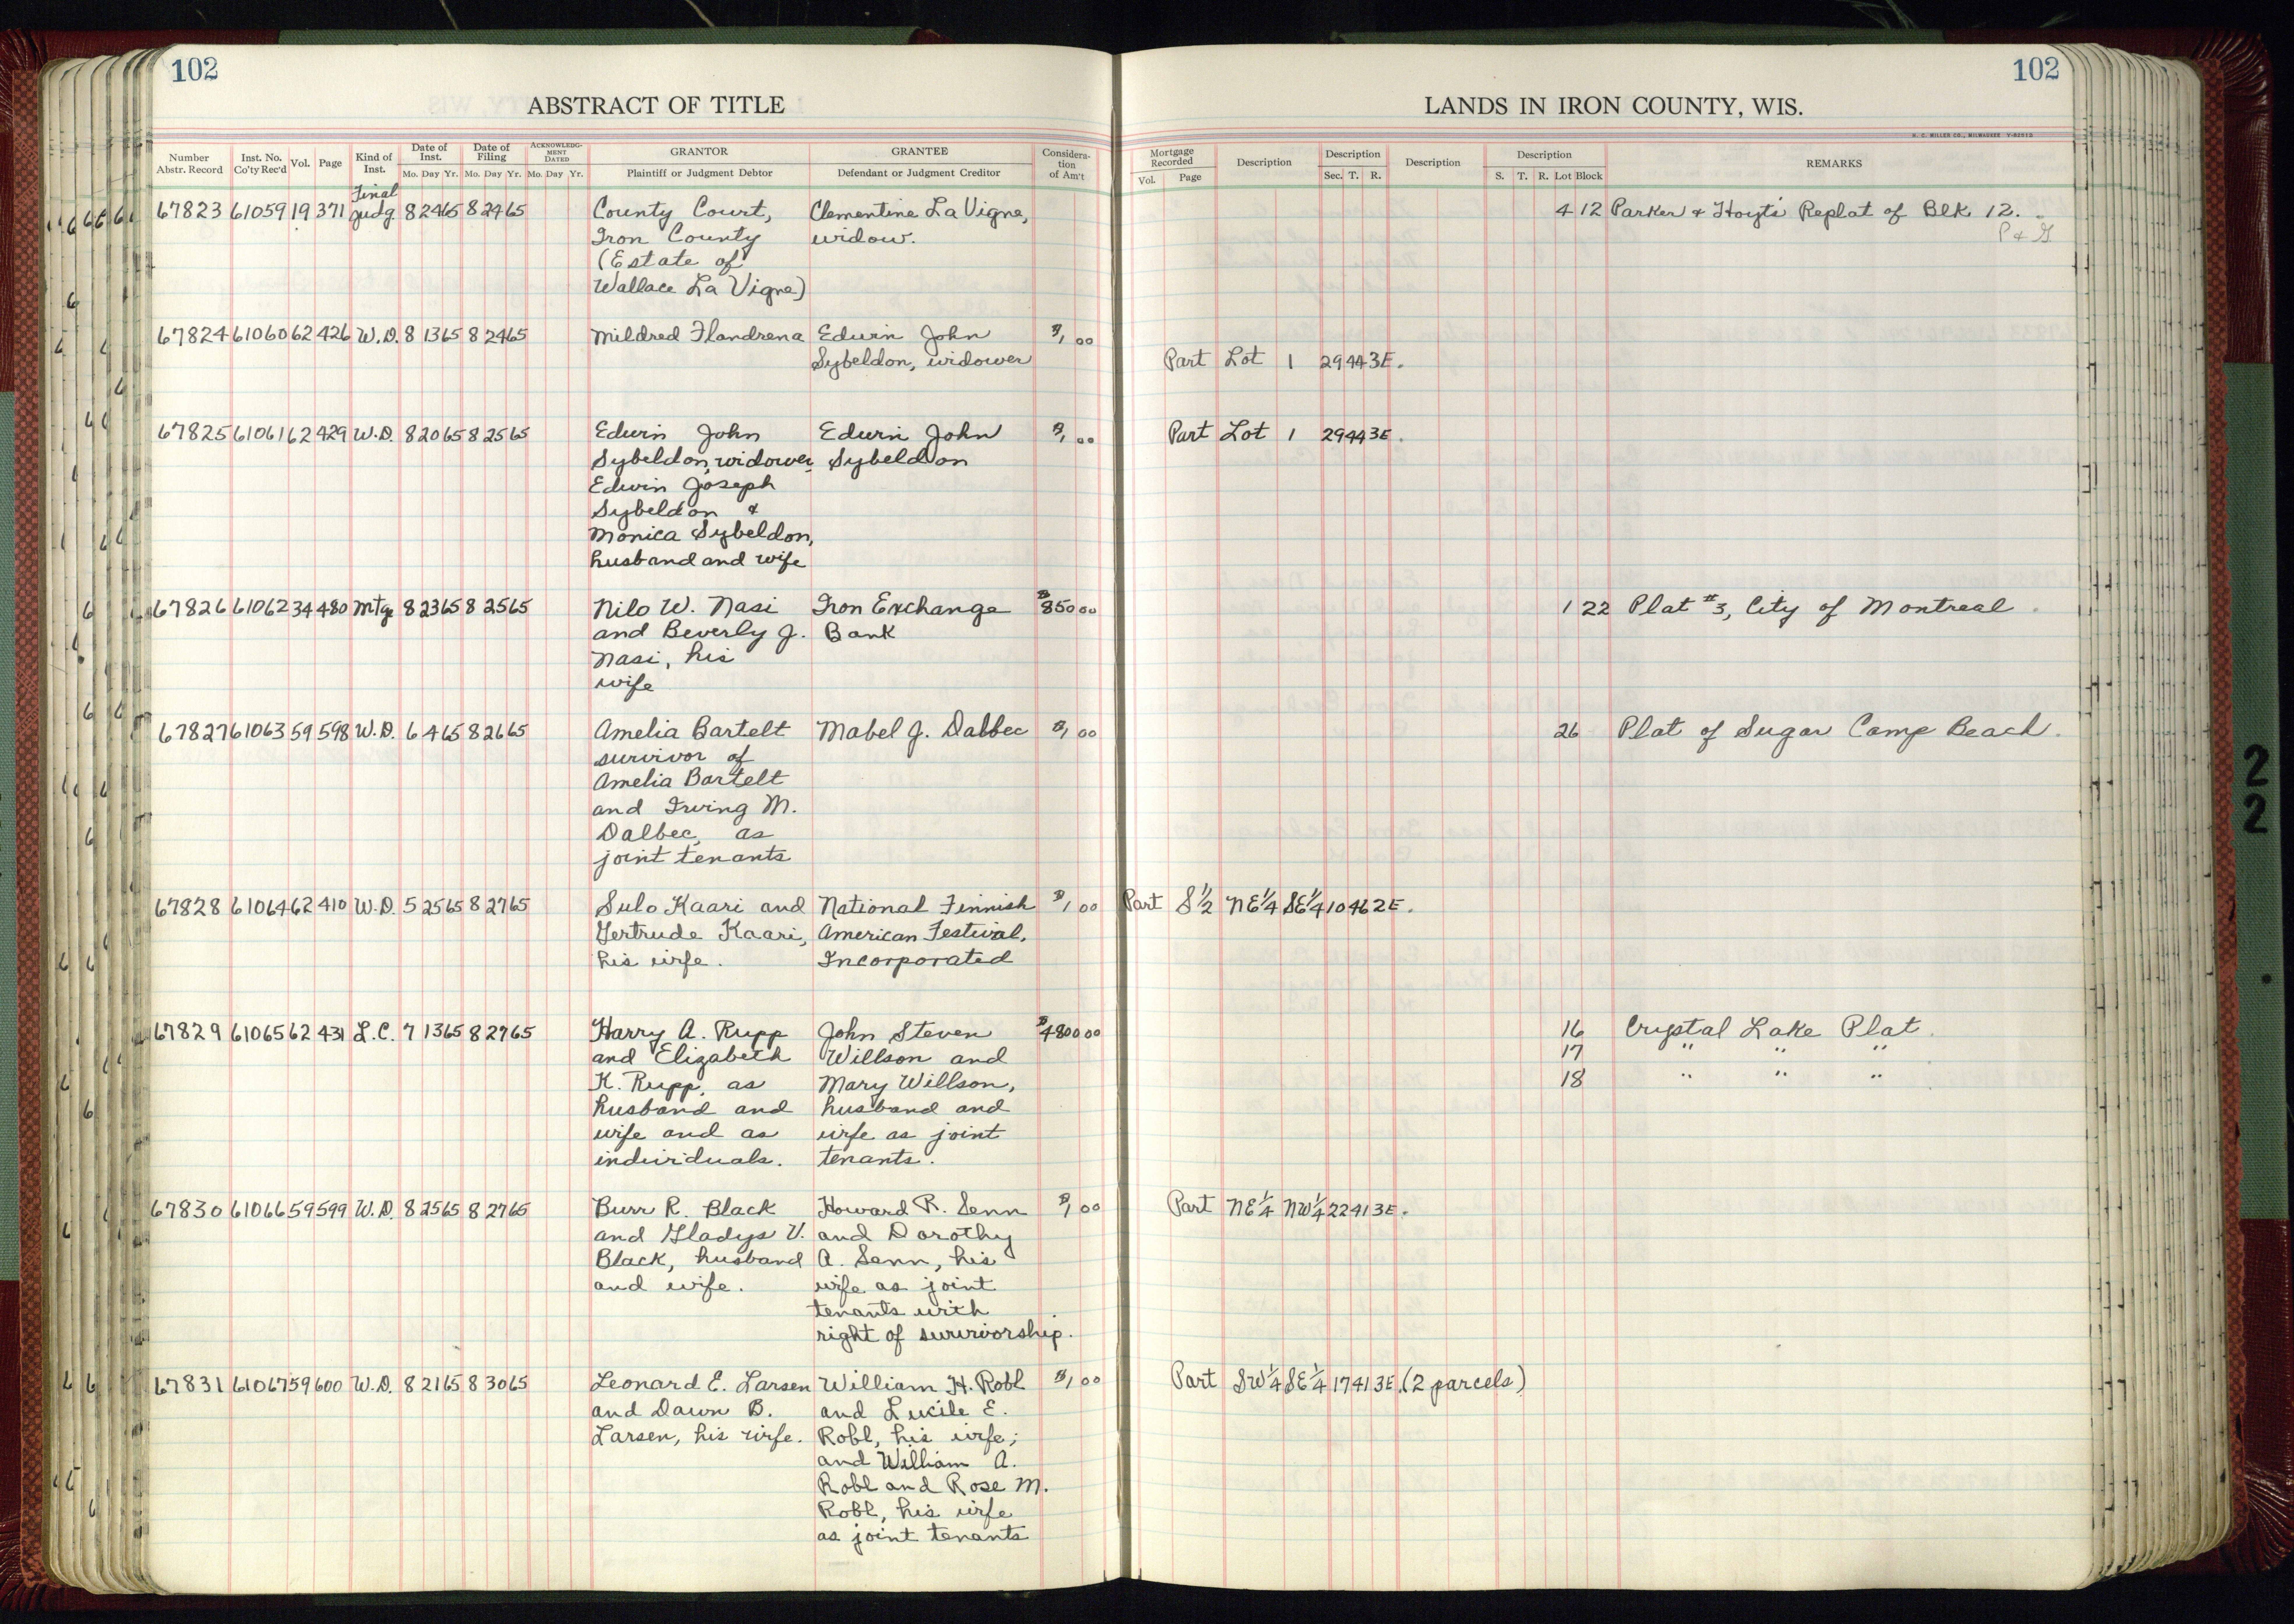 102
102
ABSTRACT OF TITLE
LANDS IN IRON COUNTY, WIS.
H. C. MILLER CO., MILWAUKEE
Number Abstr. Record Inst. No. Co'ty Rec'd Vol. Page Kind of Inst. Date of Inst. Mo. Day Yr. Date of Filing Mo. Day Yr. ACKNOWLEDGMENT DATED Mo. Day Yr. GRANTOR Plaintiff or Judgment Debtor GRANTEE Defendant or Judgment Creditor Consideration of Am't
Mortgage Recorded Vol. Page Description Description Sec. T. R. Description Description S. T. R. Lot Block REMARKS
Final
67823 61059 19 371 Judg. 8 24 65 8 24 65 County Court, Clementine La Vigne, 4 12 Parker & Hoyt's Replat of Blk 12.
Iron County widow. P & G
(Estate of
Wallace La Vigne)
67824 61060 62 426 W.D. 8 13 65 8 24 65 Mildred Flandrena Edwin John $1 00
Sybeldon, widower Part Lot 1 29 44 3E.
67825 61061 62 429 W.D. 8 20 65 8 25 65 Edwin John Edwin John $1 00 Part Lot 1 29 44 3E.
Sybeldon, widower, Sybeldon
Edwin Joseph
Sybeldon &
Monica Sybeldon,
husband and wife
67826 61062 34 480 Mtge 8 23 65 8 25 65 Nilo W. Nasi Iron Exchange $850 00 1 22 Plat #3, City of Montreal.
and Beverly J. Bank
Nasi, his
wife
67827 61063 59 598 W.D. 6 4 65 8 26 65 Amelia Bartelt Mabel J. Dalbec $1 00 26 Plat of Sugar Camp Beach.
survivor of
Amelia Bartelt
and Irving M.
Dalbec, as
joint tenants
67828 61064 62 410 W.D. 5 25 65 8 27 65 Sulo Kaari and National Finnish $1 00 Part S½ NE¼ SE¼ 10 46 2E.
Gertrude Kaari, American Festival,
his wife. Incorporated
67829 61065 62 431 L.C. 7 13 65 8 27 65 Harry A. Rupp John Steven $4800 00 16 Crystal Lake Plat.
and Elizabeth Willson and 17 " " "
K. Rupp, as Mary Willson, 18 " " "
husband and husband and
wife and as wife as joint
individuals. tenants.
67830 61066 59 599 W.D. 8 25 65 8 27 65 Burr R. Black Howard R. Senn $1 00 Part NE¼ NW¼ 22 41 3E.
and Gladys V. and Dorothy
Black, husband A. Senn, his
and wife. wife as joint
tenants with
right of survivorship.
67831 61067 59 600 W.D. 8 21 65 8 30 65 Leonard E. Larsen William H. Robl $1 00 Part SW¼ SE¼ 17 41 3E. (2 parcels)
and Dawn B. and Lucile E.
Larsen, his wife. Robl, his wife;
and William A.
Robl and Rose M.
Robl, his wife
as joint tenants
2
2